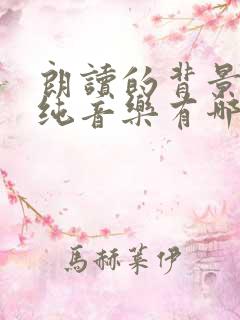 朗讀的背景
純音樂有哪
馬赫萊伊